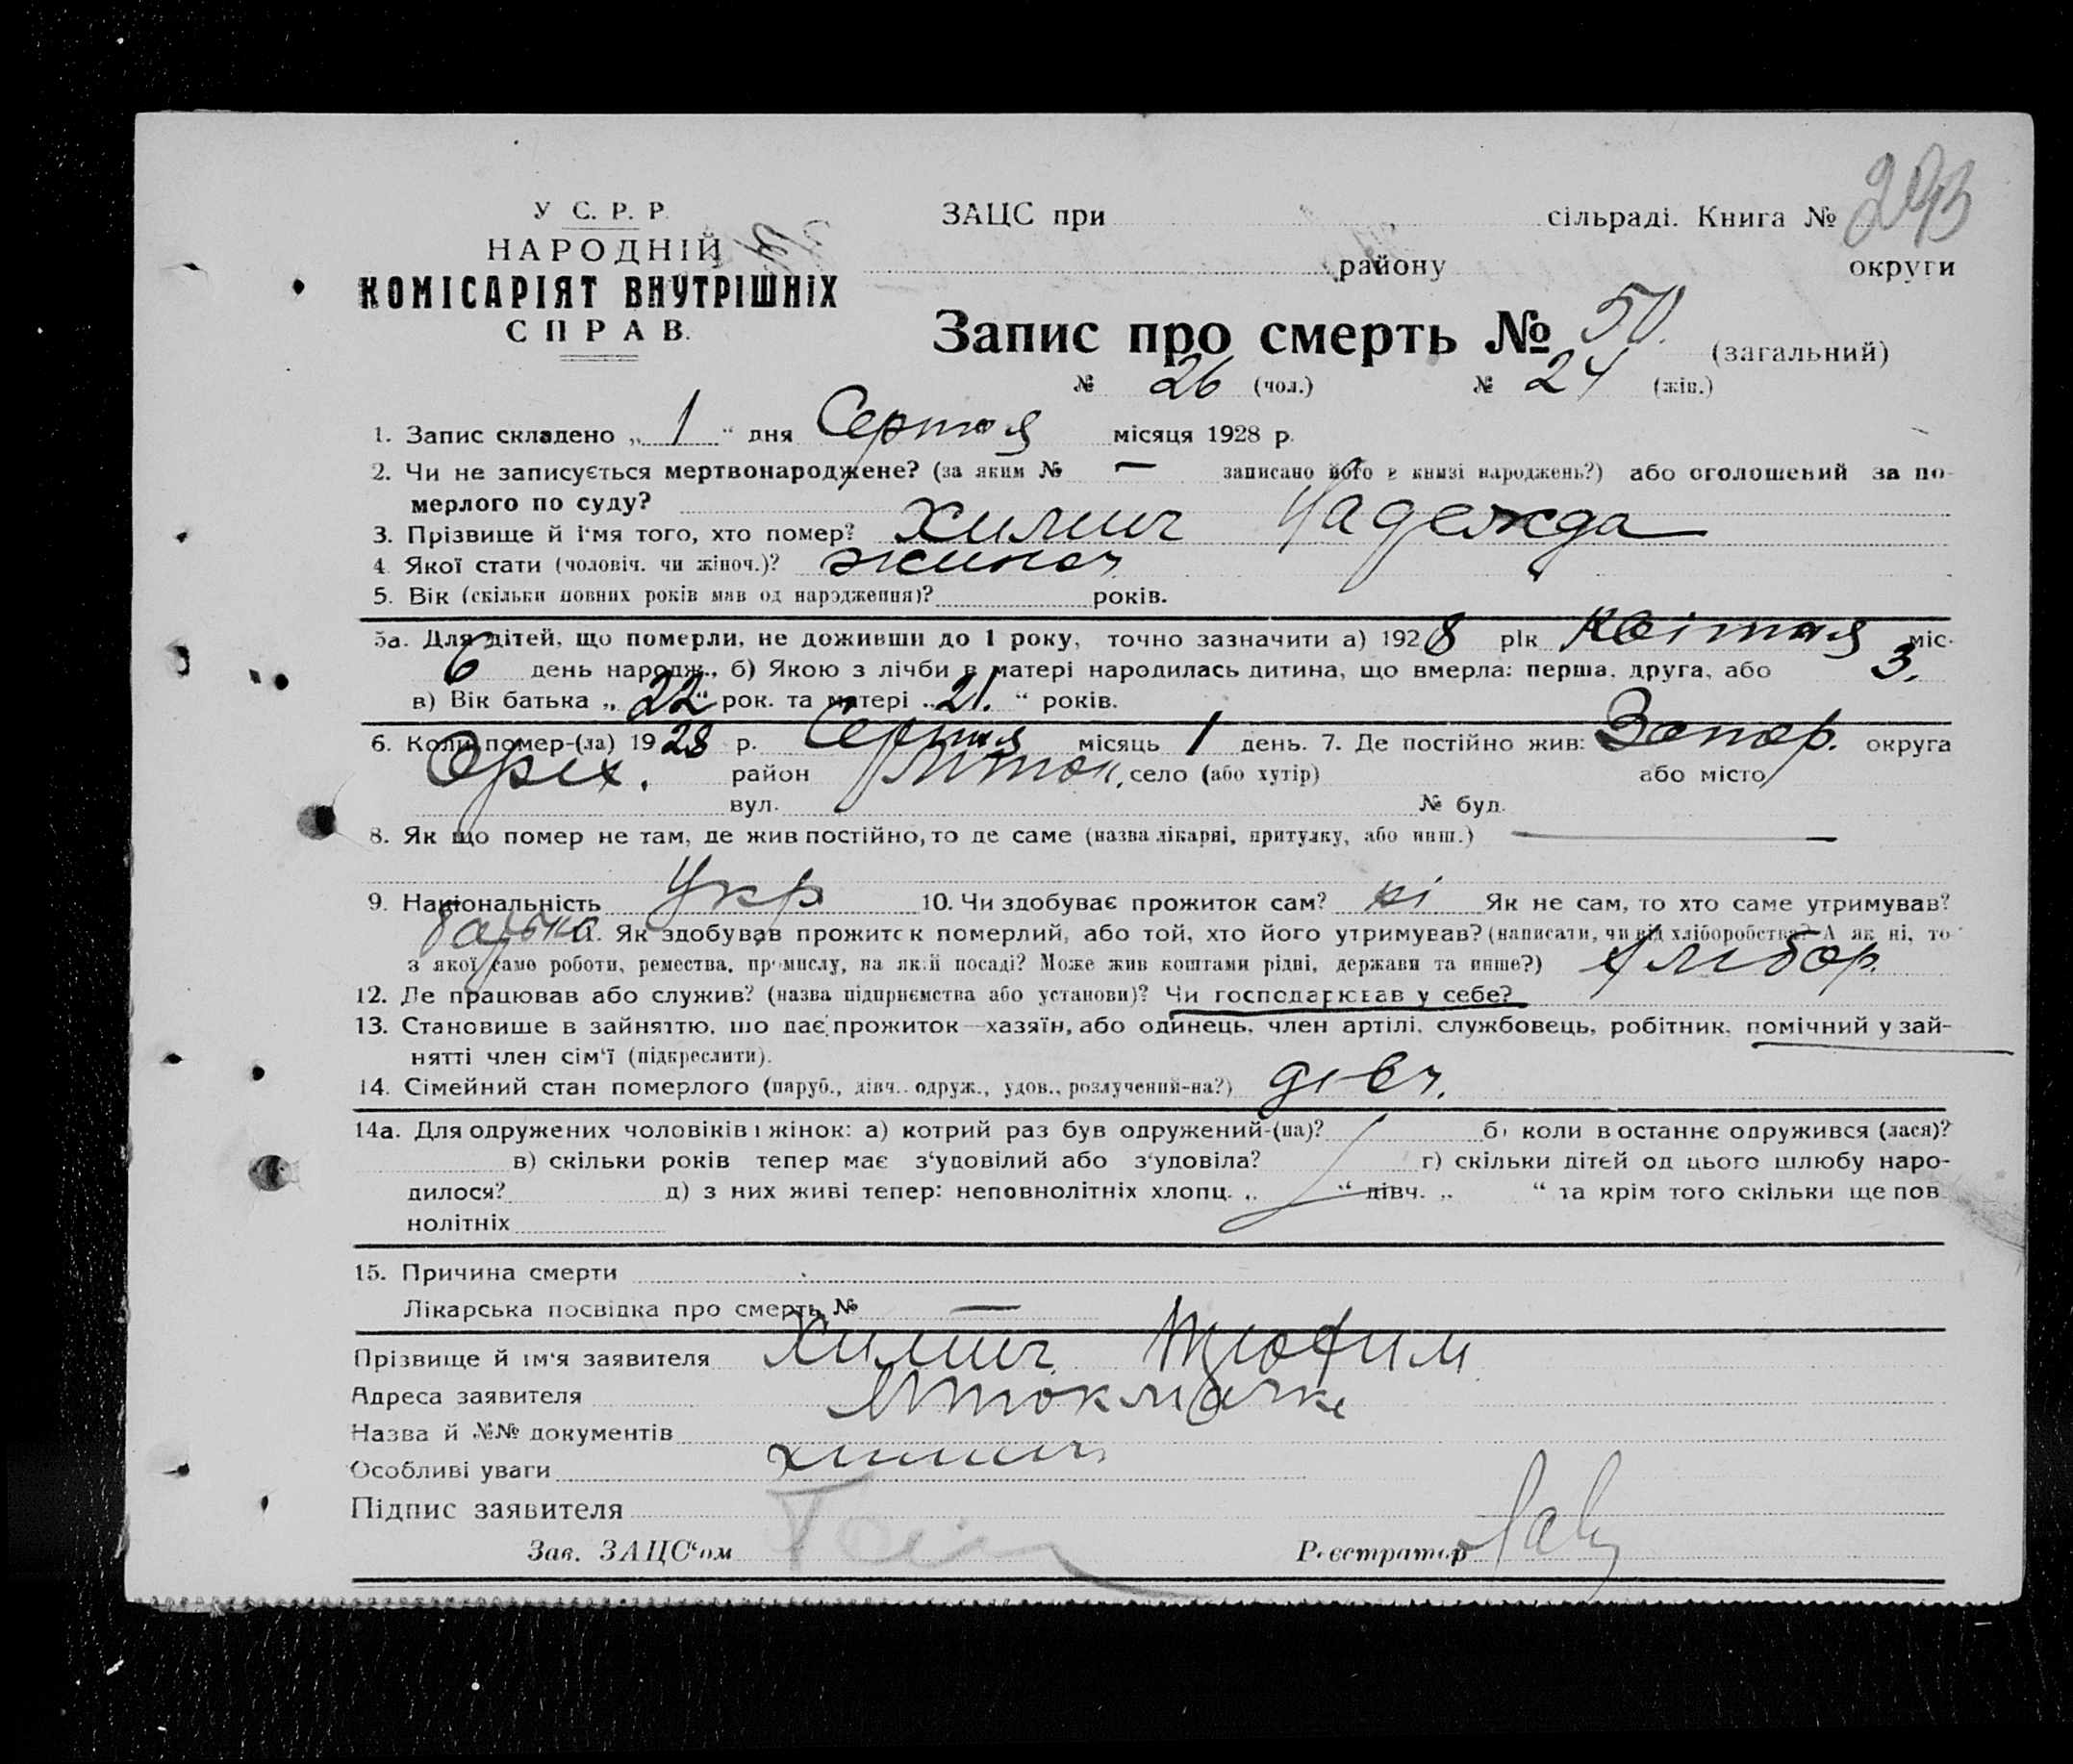 У С. Р. Р.
НАРОДНІЙ
КОМІСАРІЯТ ВНУТРІШНІХ
СПРАВ.
ЗАЦС при сільраді. Книга № 293
району округи
Запис про смерть № 50. (загальний)
№ 26 (чол.) № 24 (жін.)
1. Запис складено „ 1 “ дня Серпня місяця 1928 р.
2. Чи не записується мертвонароджене? (за яким № — записано його в книзі народжень?) або оголошений за по-
мерлого по суду?
3. Прізвище й і‘мя того, хто помер? Хилич Надежда
4. Якої стати (чоловіч. чи жіноч.)? жиноч.
5. Вік (скільки повних років мав од народження)? років.
5а. Для дітей, що померли, не доживши до 1 року, точно зазначити а) 1928 рік Квітня міс.
6 день народж., б) Якою з лічби в матері народилась дитина, що вмерла: перша, друга, або 3.
в) Вік батька „ 22 “ рок. та матері „ 21. “ років.
6. Коли помер-(ла) 1928 р. Серпня місяць 1 день. 7. Де постійно жив: Запор. округа
Оріх. район Мток. село (або хутір) або місто
вул. № буд.
8. Як що помер не там, де жив постійно, то де саме (назва лікарні, притулку, або инш.) —
9. Національність Укр 10. Чи здобуває прожиток сам? ні Як не сам, то хто саме утримував?
батько 11. Як здобував прожиток померлий, або той, хто його утримував? (написати, чи від хліборобства? А як ні, то
з якої само роботи, ремества, промислу, на якій посаді? Може жив коштами рідні, держави та инше?) Хлібор.
12. Де працював або служив? (назва підприємства або установи)? Чи господарював у себе?
13. Становище в зайняттю, що дає прожиток—хазяїн, або одинець, член артілі, службовець, робітник, помічний у зай-
нятті член сім‘ї (підкреслити).
14. Сімейний стан померлого (паруб., дівч. одруж., удов., розлучений-на?) дівч.
14а. Для одружених чоловіків і жінок: а) котрий раз був одружений-(на)? б) коли востаннє одружився (лася)?
в) скільки років тепер має з‘удовілий або з‘удовіла? г) скільки дітей од цього шлюбу наро-
дилося? д) з них живі тепер: неповнолітніх хлопц. „ “ дівч. „ “ та крім того скільки ще пов-
нолітніх
15. Причина смерти
Лікарська посвідка про смерть № —
Прізвище й ім‘я заявителя Хилич Трофим
Адреса заявителя Мтокмачке
Назва й №№ документів
Особливі уваги хилич
Підпис заявителя
Зав. ЗАЦС‘ом Реєстратор